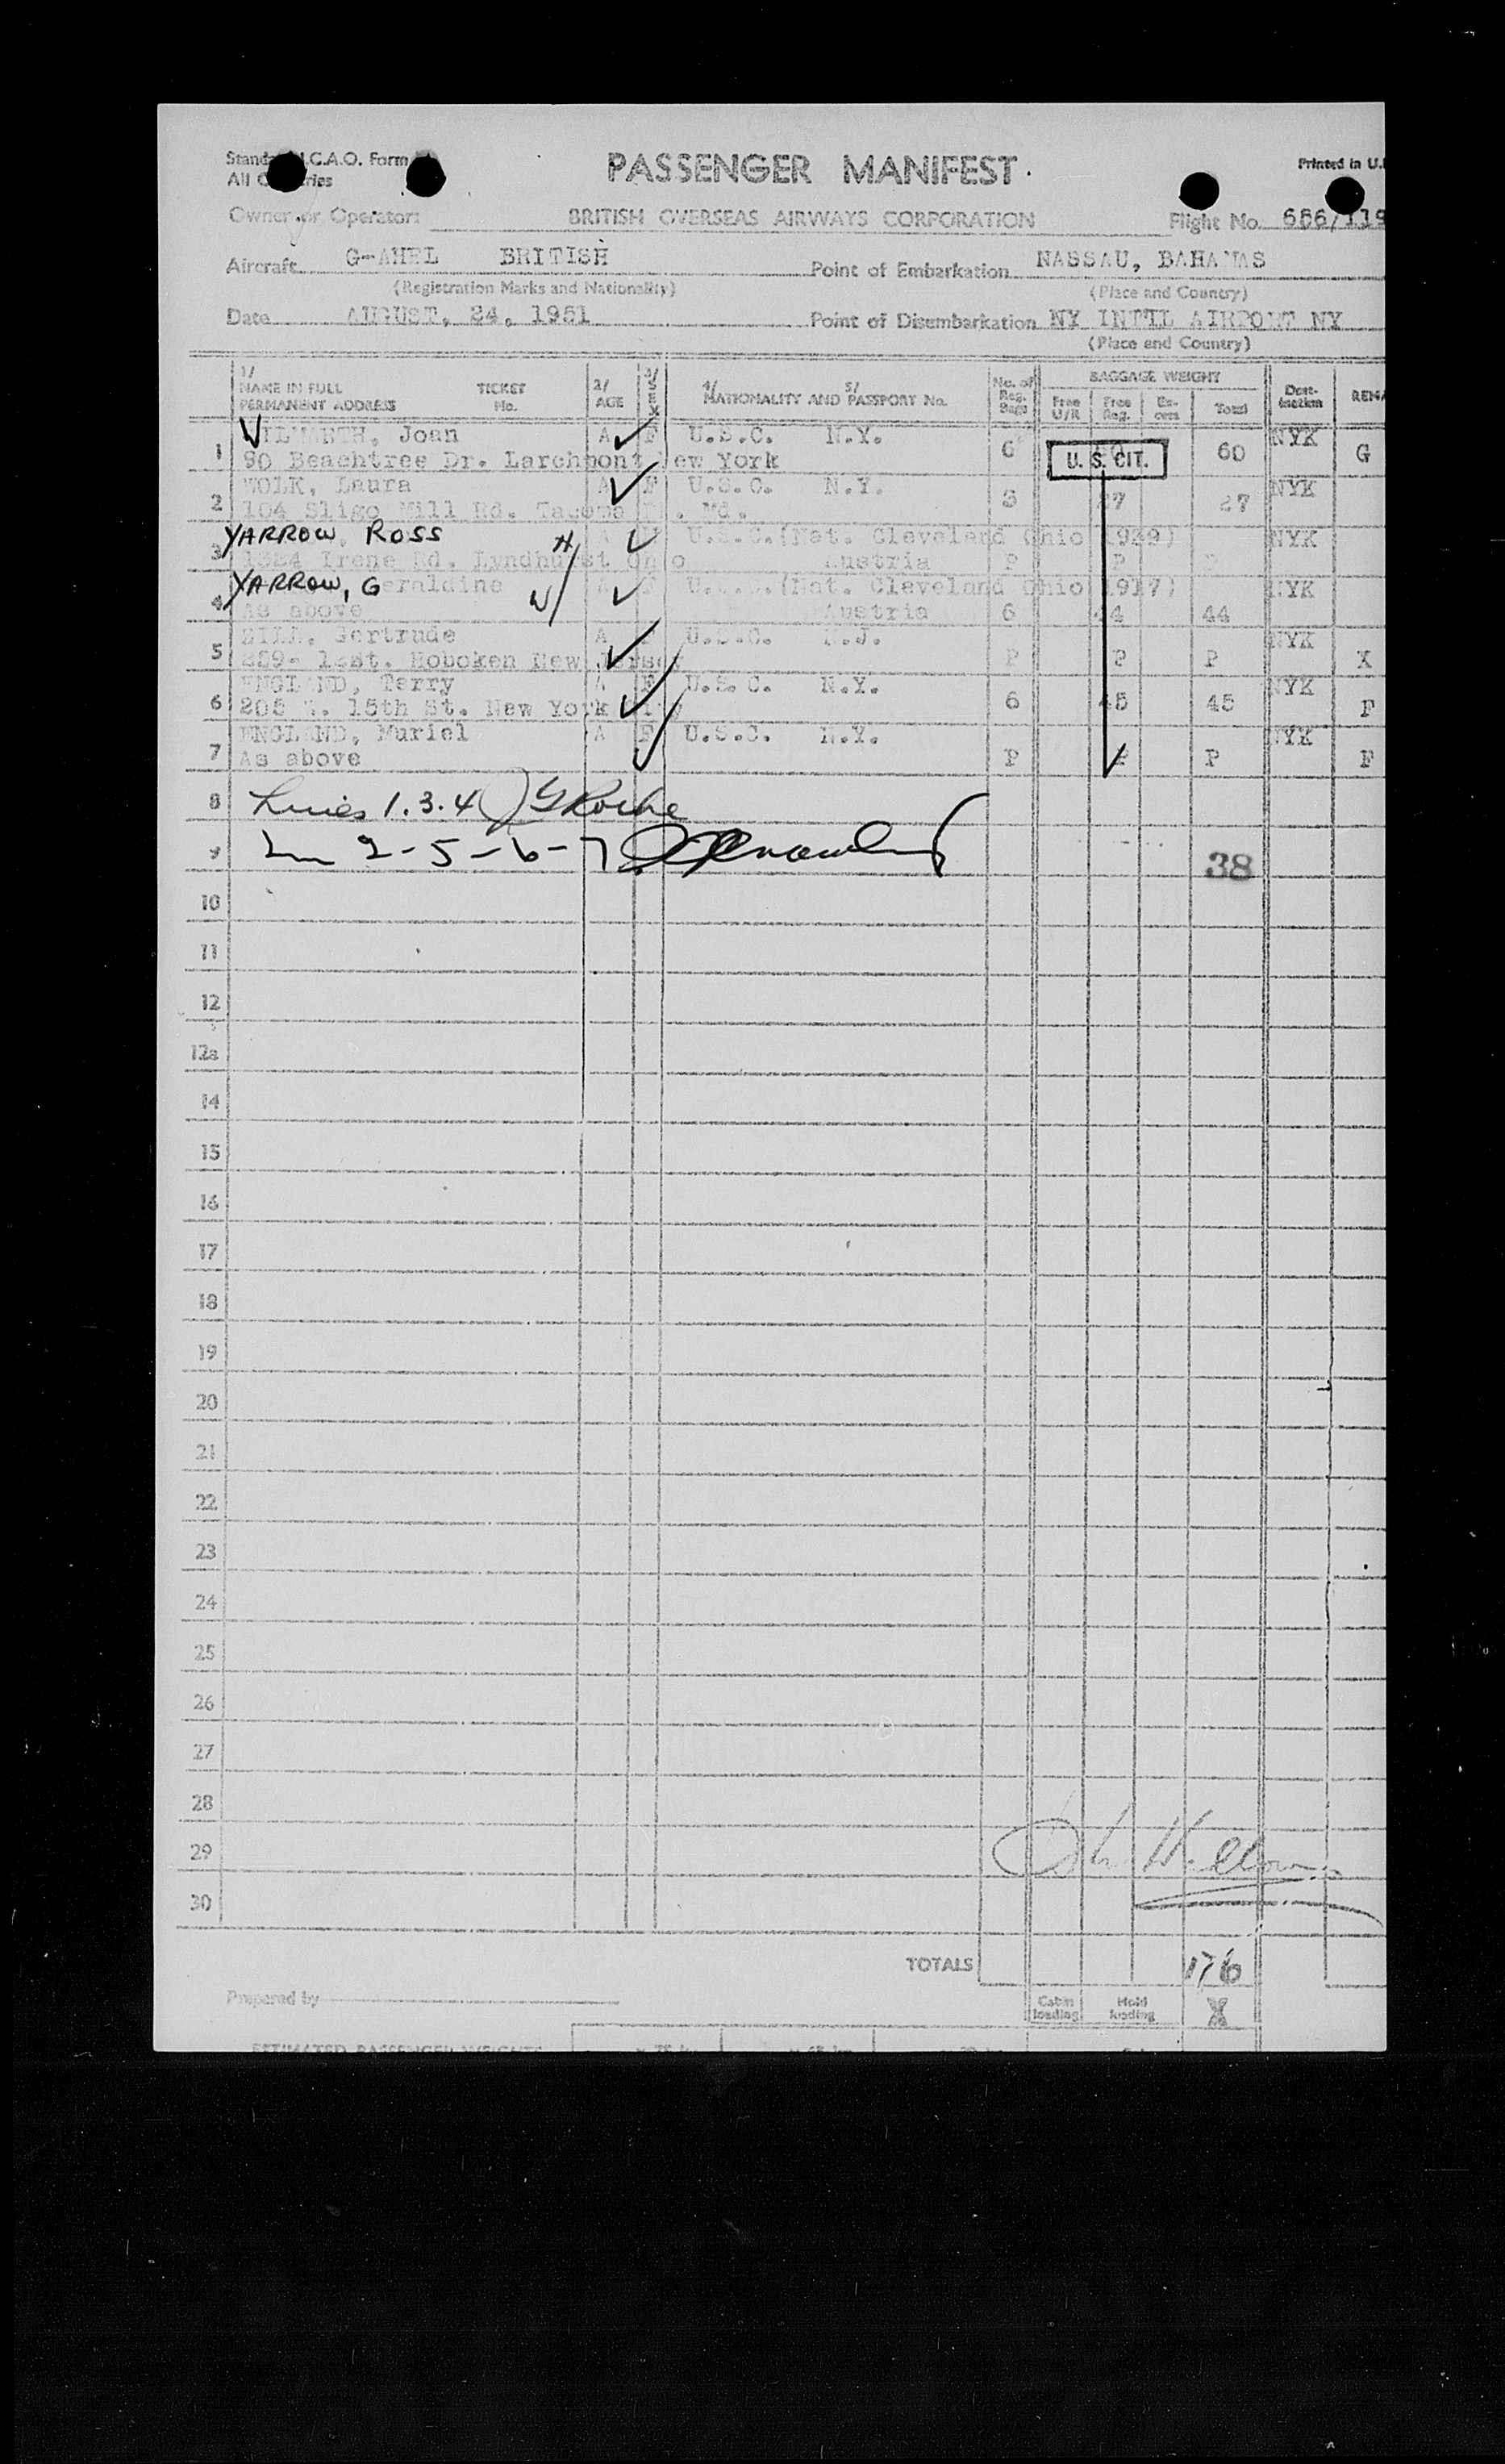 Standard I.C.A.O. Form
All Countries
PASSENGER MANIFEST
Printed in U.
Owner or Operator: BRITISH OVERSEAS AIRWAYS CORPORATION Flight No. 686/119
Aircraft G-AHEL BRITISH Point of Embarkation NASSAU, BAHAMAS
(Registration Marks and Nationality) (Place and Country)
Date AUGUST, 24, 1951 Point of Disembarkation NY INT'L AIRPORT NY
(Place and Country)
1/ NAME IN FULL PERMANENT ADDRESS TICKET No. 2/ AGE 3/ SEX 4/ NATIONALITY AND 5/ PASSPORT No. No. of Reg. Bags BAGGAGE WEIGHT Free U/R Free Reg. Ex-cess Total Dest-ination REMA
1 WILMARTH, Joan A F U.S.C. N.Y. 6 60 NYK G
90 Beachtree Dr. Larchmont New York
U. S. CIT.
2 WOLK, Laura A F U.S.C. N.Y. 3 27 27 NYK
104 Sligo Mill Rd. Md.
3 YARROW, ROSS U.S.C. (Nat. Cleveland Ohio 1929) NYK
Irene Rd. Lyndhurst Ohio Austria P P P
4 YARROW, G eraldine F U.S.C. (Nat. Cleveland Ohio 1917) NYK
As above Austria 6 44 44
5 Gertrude A F U.S.C. N.J. NYK
Hoboken New Jersey P P P X
6 ENGLAND, Terry A F U.S.C. N.Y. NYK
205 W. 15th St. New York 6 45 45 F
7 ENGLAND, Muriel A F U.S.C. N.Y. NYK
As above P P P F
8 Lines 1.3.4) G Roche
9 2-5-6-7
38
10
11
12
12a
14
15
16
17
18
19
20
21
22
23
24
25
26
27
28
29
30
TOTALS 176
Prepared by
Cabin loading Hold loading X
ESTIMATED PASSENGER WEIGHTS